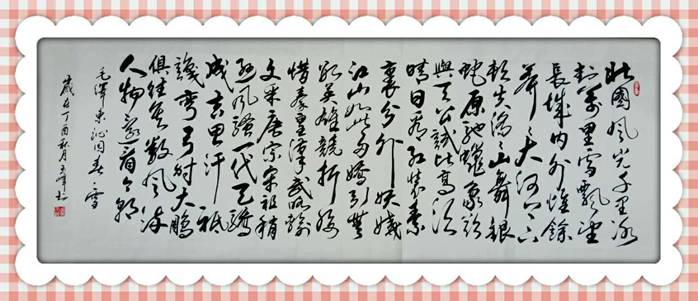 北國風光千里冰
封萬里雪飄望
長城內外惟餘
莽莽大河上下
頓失滔滔山舞銀
蛇原馳蠟象欲
與天公試比高須
晴日看紅裝素
裹分外妖嬈
江山如此多嬌引無
數英雄競折腰
惜秦皇漢武略輸
文采唐宗宋祖稍
遜風騷一代天驕
成吉思汗祇
識彎弓射大鵰
俱往矣數風流
人物還看今朝
毛澤東沁園春雪
歲在丁酉秋月